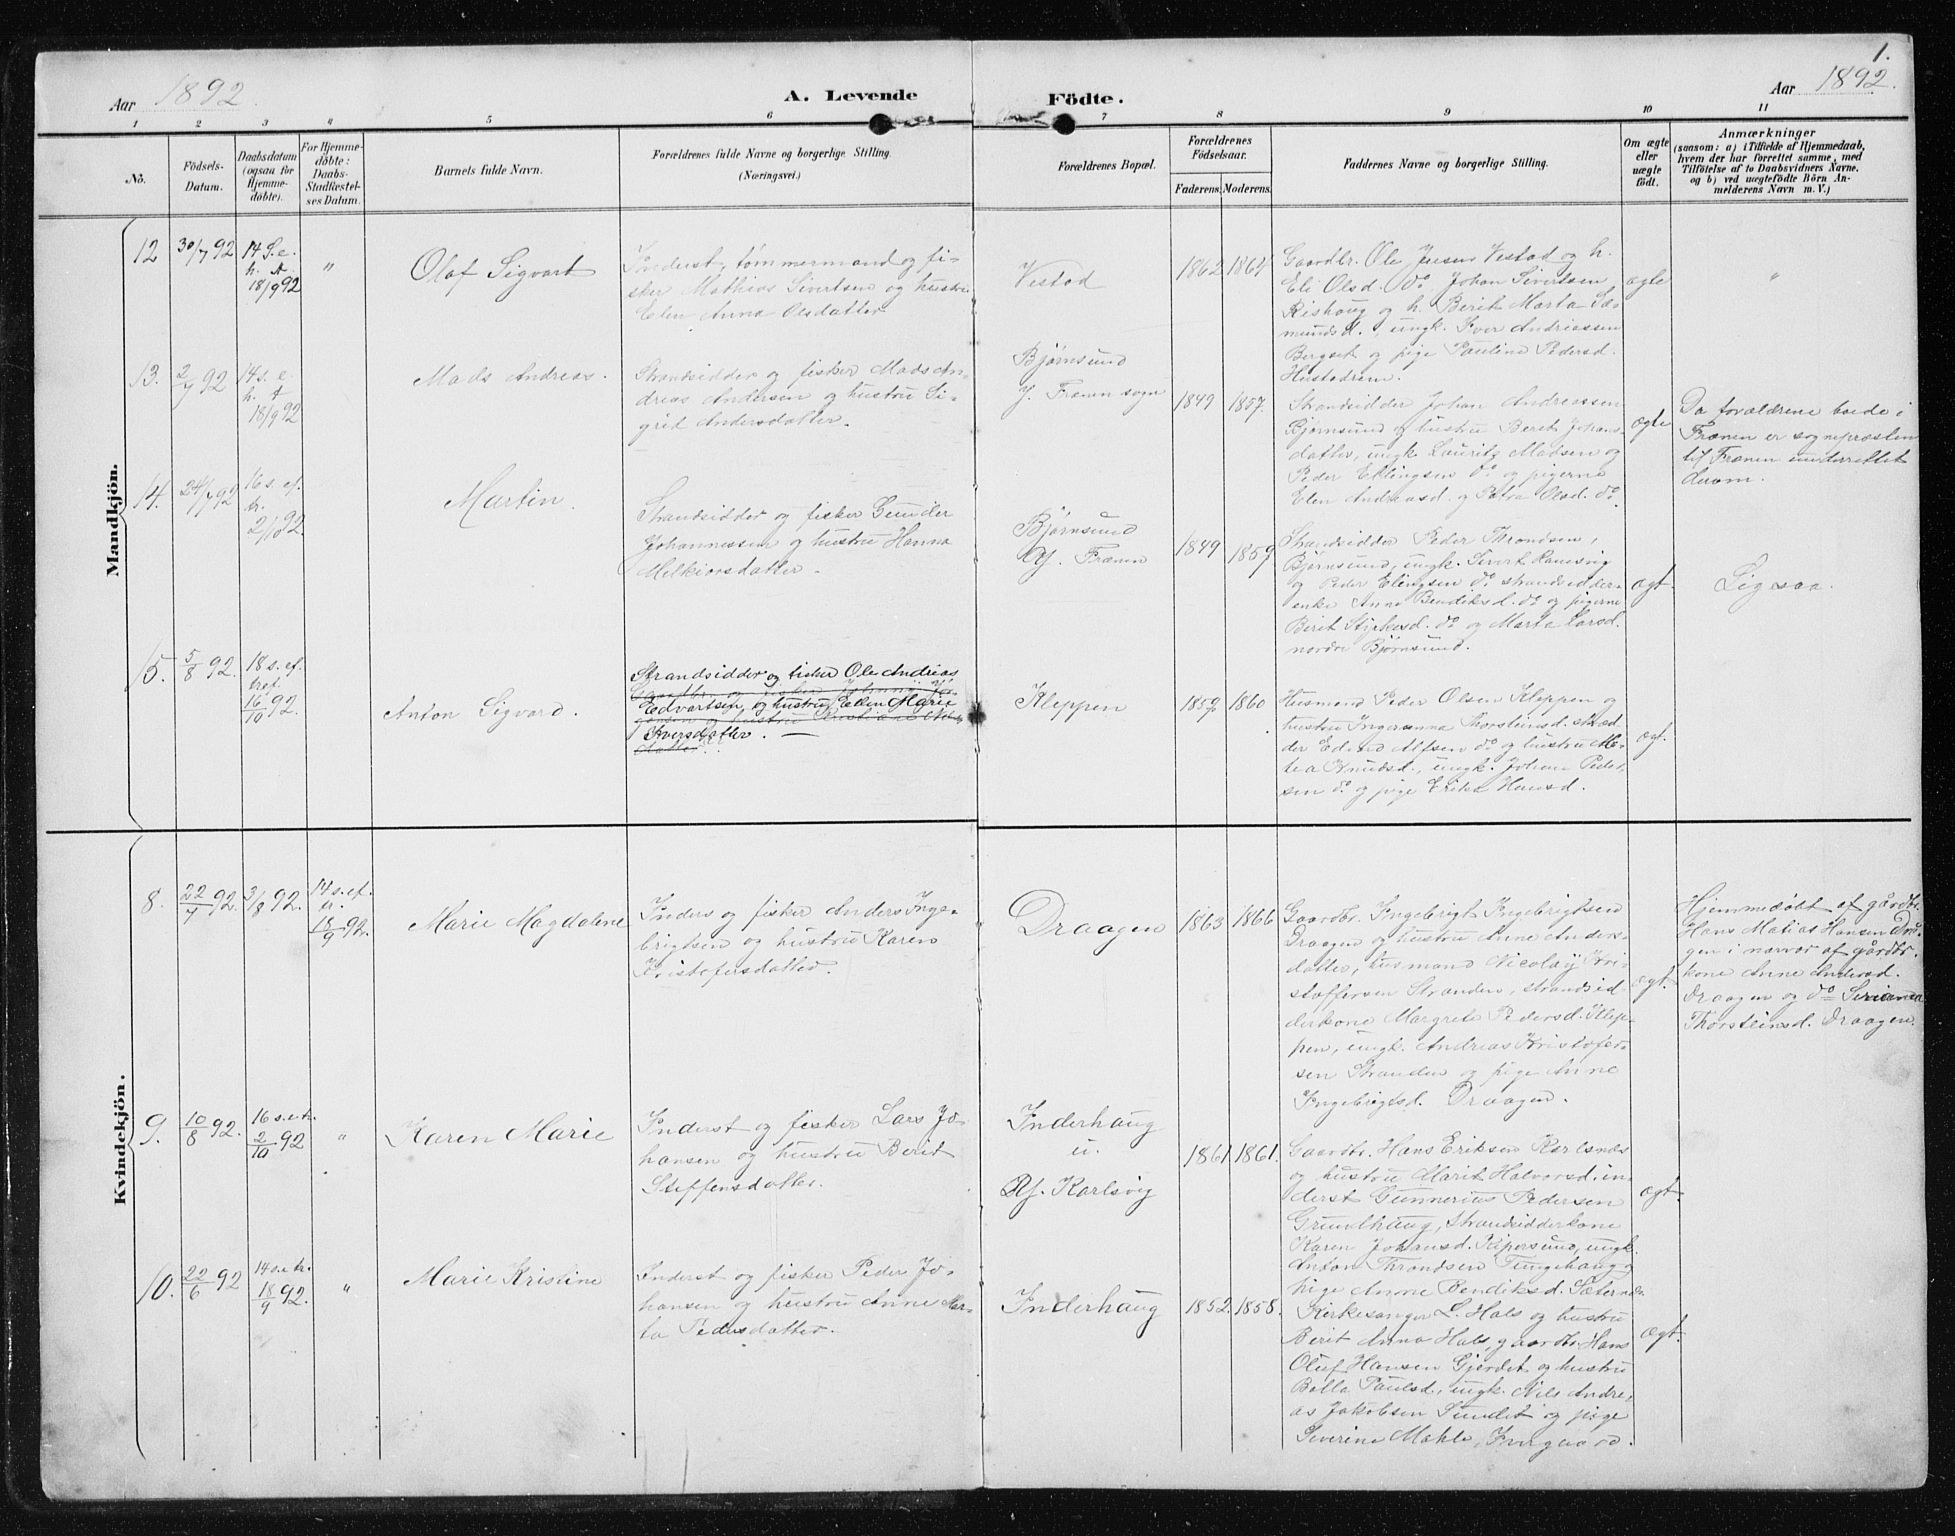 1.
Aar 1892.
A. Levende Födte.
Aar 1892.
1 2 3 4 5 6 7 8 9 10 11
No.
Födsels-
Datum.
Daabsdatum
(ogsaa for
Hjemme-
döbte).
For Hjemme-
döbte:
Daabs-
Stadfæstel-
ses Datum.
Barnets fulde Navn.
Forældrenes fulde Navne og borgerlige Stilling.
(Næringsvei.)
Forældrenes Bopæl.
Forældrenes
Födselsaar.
Faderens. Moderens.
Faddernes Navne og borgerlige Stilling.
Om ægte
eller
uægte
født.
Anmærkninger
(saasom: a) i Tilfælde af Hjemmedaab,
hvem der har forrettet samme, med
Tilföielse af to Daabsvidners Navne.
og b) ved uægtefödte Börn An-
melderens Navn m. V.)
Mandkjön.
12
30/7 92
14 S. e.
h. t.
18/9 92
"
Olaf Sigvart
Inderst, tømmermand og fi-
sker Mathias Sivertsen og hustru
Elen Anna Olsdatter
Vestad
1862 1864
Gaardbr. Ole Jensen Vestad og h.
Eli Olsd. do Johan Sivertsen
Rishaug og h. Berit Marta Sæ-
mundsd., ungk. Iver Andreassen
Bergset og pige Pauline Pedersd.
Hustadrem.
ægte
"
13.
2/7 92
14 s. e.
h. t
18/9 92
Mads Andreas.
Strandsidder og fisker Mads An-
dreas Andersen og hustru Si-
grid Andersdatter.
Bjørnsund
Y. Frænen sogn
1849 1857.
Strandsidder Johan Andreassen
Bjørnsund og hustru Berit Johans-
datter, ungk. Lauritz Madsen og
Peder Ellingsen do og pigerne
Elen Andreasd. og Petra Olsd. do
ægte
Da forældrene boede i
Frænen er sognepræsten
til Frænen underrettet
derom.
14.
24/7 92
16 s. ef.
tr.
2/10 92
Martin.
Strandsidder og fisker Gunder
Johannessen og hustru Hanna
Melkiorsdatter.
Bjørnsund
Y. Frænen
1849 1859
Strandsidder Peder Throndsen,
Bjørnsund, ungk. Sivert Ramsvig
og Peder Elingsen do strandsidder-
enke Anne Bendiksd. do og pigerne
Berit Styrkersd. do og Marta Larsd.
nordre Bjørnsund.
ægt.
Ligesaa.
15.
5/8 92.
18 s. ef.
tref.
16/10 92.
Anton Sigvard.
Strandsidder og fisker Ole Andreas
Edvartsen og hustru Ellen Marie
Iversdatter. —
Kleppen
1859 1860
Husmand Peder Olsen Kleppen og
hustru Ingeranna Thorsteinsd. skræd-
der Edvard Alfsen do og hustru Me-
tea Knudsd., ungk. Johan Peder-
sen do og pige Erika Hansd.
ægt.
Kvindekjön.
8.
22/7 92.
3/8 92.
14 s. ef.
tr.
18/9 92.
Marie Magdalene
Inders og fisker Anders Inge-
brigtsen og hustru Karen
Kristofersdatter.
Draagen
1863 1866
Gaardbr. Ingebrigt Ingebrigtsen
Draagen og hustru Anne Anders-
datter, husmand Nicolay Kri-
stoffersen Stranden, strandsid-
derkone Margrete Pedersd. Klep-
pen, ungk. Andreas Kristofer-
sen Stranden og pige Anne
Ingebrigtsd. Draagen.
ægt.
Hjemmedøbt af gårdbr.
Hans Matias Hansen Dra-
gen i nærvær af gårdbr.
kone Anne Andersd.
Draagen og do Serianna
Thorsteinsd. Draagen.
9.
10/8 92.
16 s. e. tr.
2/10 92
"
Karen Marie
Inderst og fisker Lars Jo-
hansen og hustru Berit
Steffensdatter.
Inderhaug
u.
Y. Karlsvig
1861 1861.
Gaardbr. Hans Eriksen Karlsnes
og hustru Marit Halvorsd. in-
derst Gunnerius Pedersen
Grundhaug, strandsidderkone
Karen Johansd. Kipersund, ungk.
Anton Throndsen Tungehaug og
pige Anne Bendiksd. Sæternes
ægt.
10.
22/6 92
14 s. e. tr.
18/9 92.
"
Marie Kristine
Inderst og fisker Peder Jo-
hansen og hustru Anne Mar-
ta Pedersdatter.
Inderhaug
1852. 1858.
Kirkesanger L. Hals og hustru
Berit Anna Hals, gaardbr. Hans
Oluf Hansen Gjerdet og hustru
Bolla Paulsd., ungk. Nils Andre-
as Jakobsen Sundet og pige
Severine Mahle, Furgaard.
ægt.